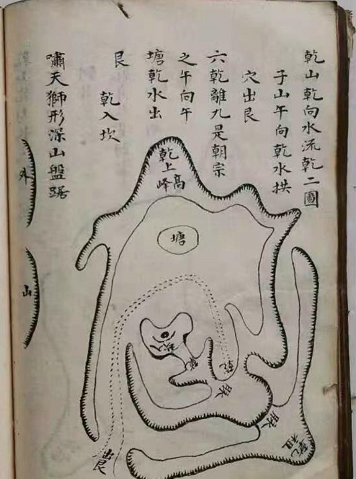 乾山乾向水流乾二圖
子山午向乾水拱
穴出艮
六乾離九是朝宗
之午向午
塘乾水出
乾入坎
艮
嘯天獅形深山盤踞
乾上高峰
塘
脉
脉
乾
山